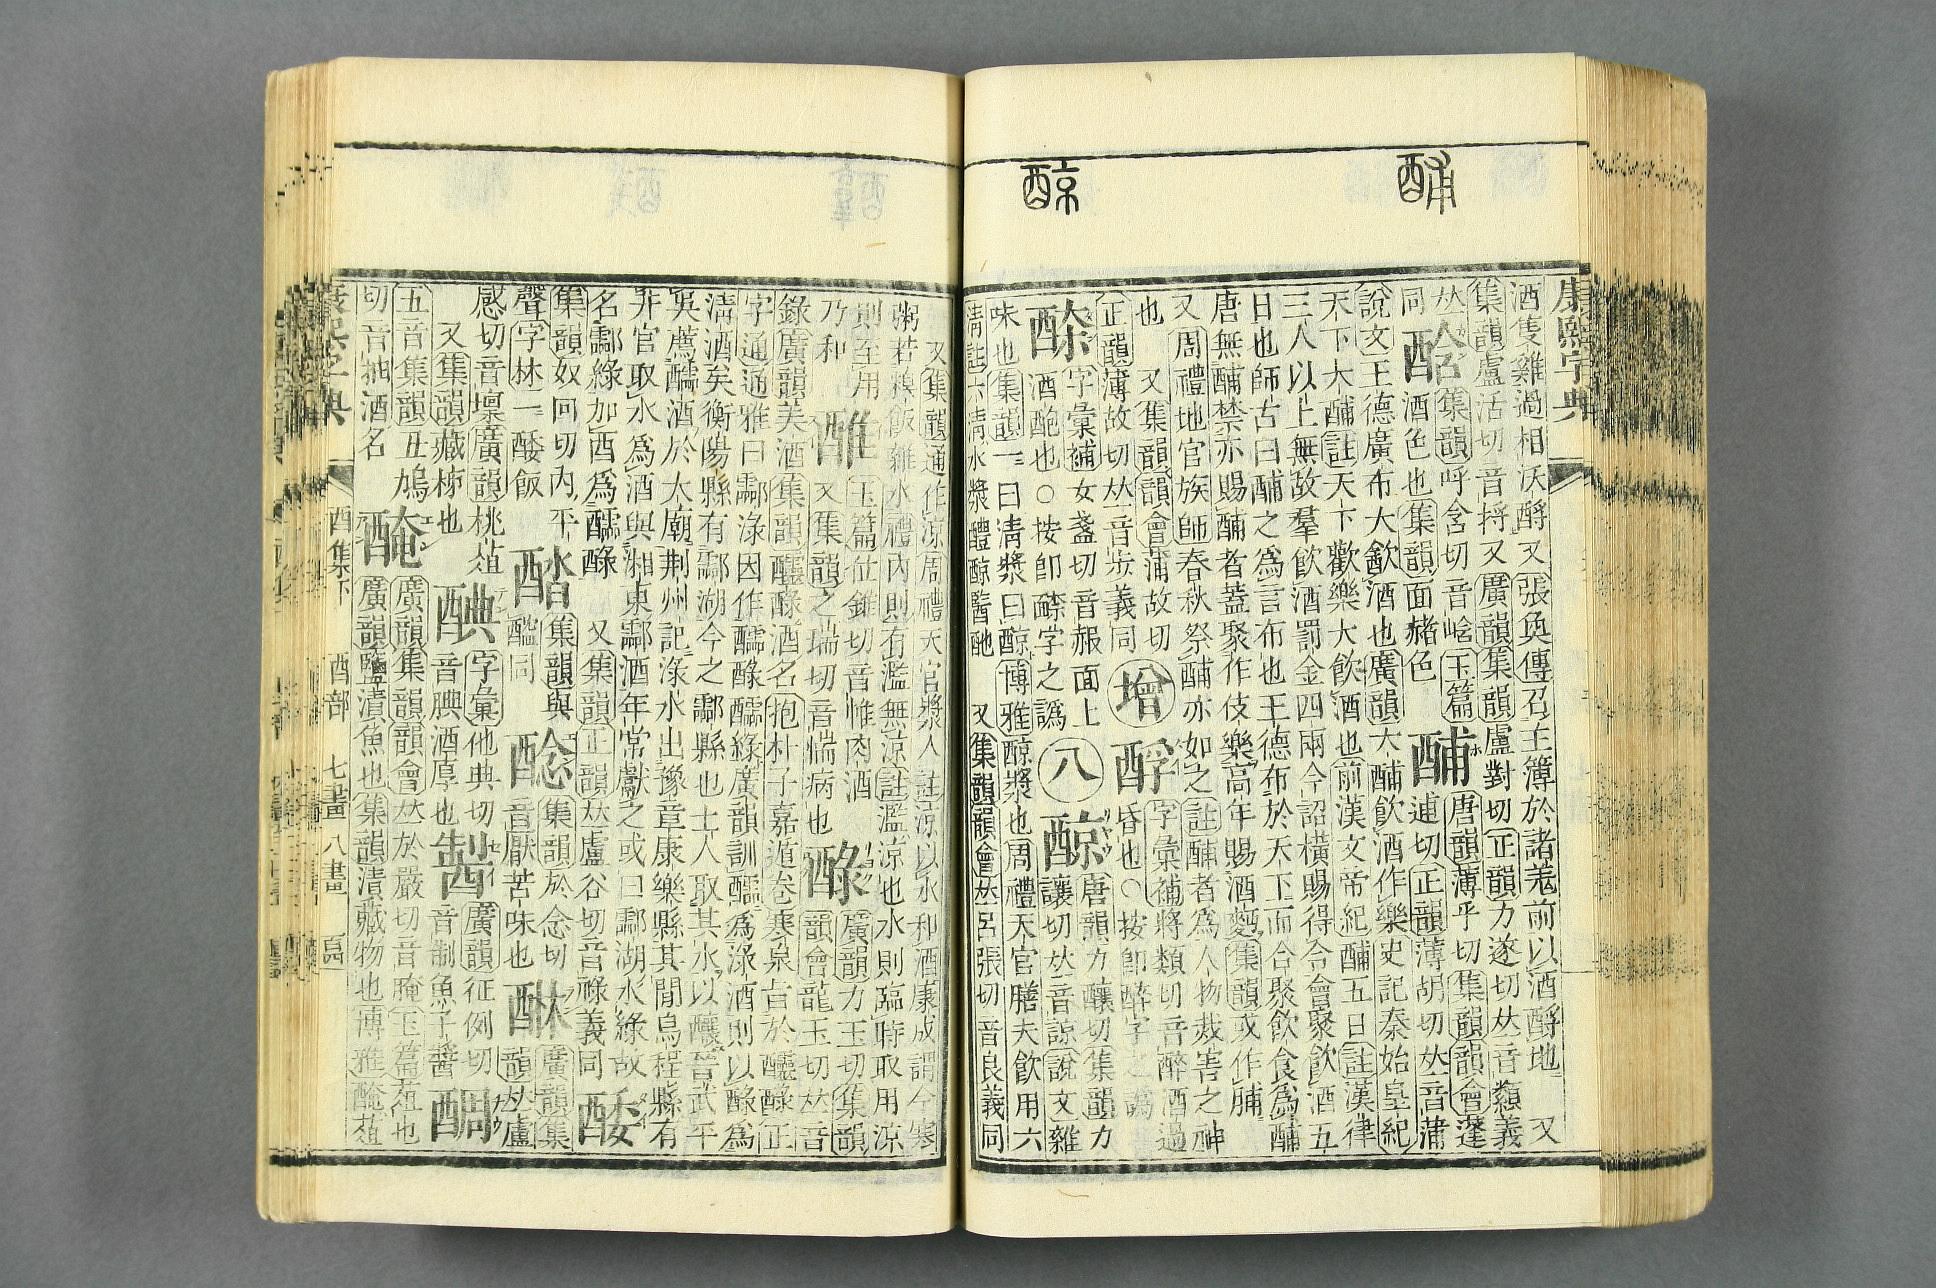 酺
醇
康熙字典
酒隻雞過相沃酹又張奐傳召主簿於諸羌前以酒酹地 又
集韻盧活切音捋又廣韻集韻盧對切正韻力遂切𠀤音類義
同 酓 集韻呼含切音㟏玉篇 酺 唐韻薄乎切集韻韻會蓬
酒色也集韻面赭色 逋切正韻薄胡切𠀤音蒲
說文王德廣布大飮酒也廣韻大酺飮酒作樂史記秦始皇紀
天下大酺註天下歡樂大飮酒也前漢文帝紀酺五日註漢律
三人以上無故羣飮酒罰金四兩今詔橫賜得令會聚飮酒五
日也師古曰酺之爲言布也王德布於天下而合聚飮食爲酺
唐無酺禁亦賜酺者蓋聚作伎樂高年賜酒麪集韻或作脯
又周禮地官族師春秋祭酺亦如之註酺者爲人物烖害之神
也 又集韻韻會蒲故切 增 酻 字彙補將類切音醉酒過
正韻薄故切𠀤音步義同 昏也○按卽醉字之譌
字彙補女盞切音赧面上 八 醇 唐韻力釀切集韻力
酒皰也○按卽𨣚字之譌 讓切𠀤音諒說文雜
味也集韻一曰淸漿曰醇博雅醇漿也周禮天官膳夫飮用六
淸註六淸水漿醴醇醫酏 又集韻韻會𠀤呂張切音良義同
又集韻通作涼周禮天官漿人註涼以水和酒康成謂今寒
粥若糗飯雜水禮內則有濫無涼註濫涼也水則臨時取用涼
則至用 䧹 玉篇仕錐切音惟肉酒 醁 廣韻力玉切集韻
乃和 又集韻之瑞切音惴病也 韻會龍玉切𠀤音
錄廣韻美酒集韻醽醁酒名抱朴子嘉遁卷寒泉旨於醽醁正
字通通雅曰酃淥因作醽醁醽綠廣韻訓醽爲淥酒則以醁爲
淸酒矣衡陽縣有酃湖今之酃縣也士人取其水以釀晉武平
吳薦醽酒於太廟荆州記淥水出豫章康樂縣其閒烏程縣有
井官取水爲酒與湘東酃酒年常獻之或曰酃湖水綠故
名酃綠加酉爲醽醁 又集韻正韻𠀤盧谷切音祿義同 酥
集韻奴回切內平 醅 集韻與 酓 集韻於念切 醂 廣韻集
聲字林一酸飯 醞同 音厭苦味也 韻𠀤盧
感切音壈廣韻桃葅 𨡁 字彙他典切 製 廣韻征例切 醄
又集韻藏柹也 音腆酒厚也 音制魚子醬
五音集韻丑鳩 醃 廣韻集韻韻會𠀤於嚴切音腌玉篇葅也
切音抽酒名 廣韻鹽漬魚也集韻漬藏物也博雅醃葅
康熙字典 酉集下 酉部 七畫 八畫